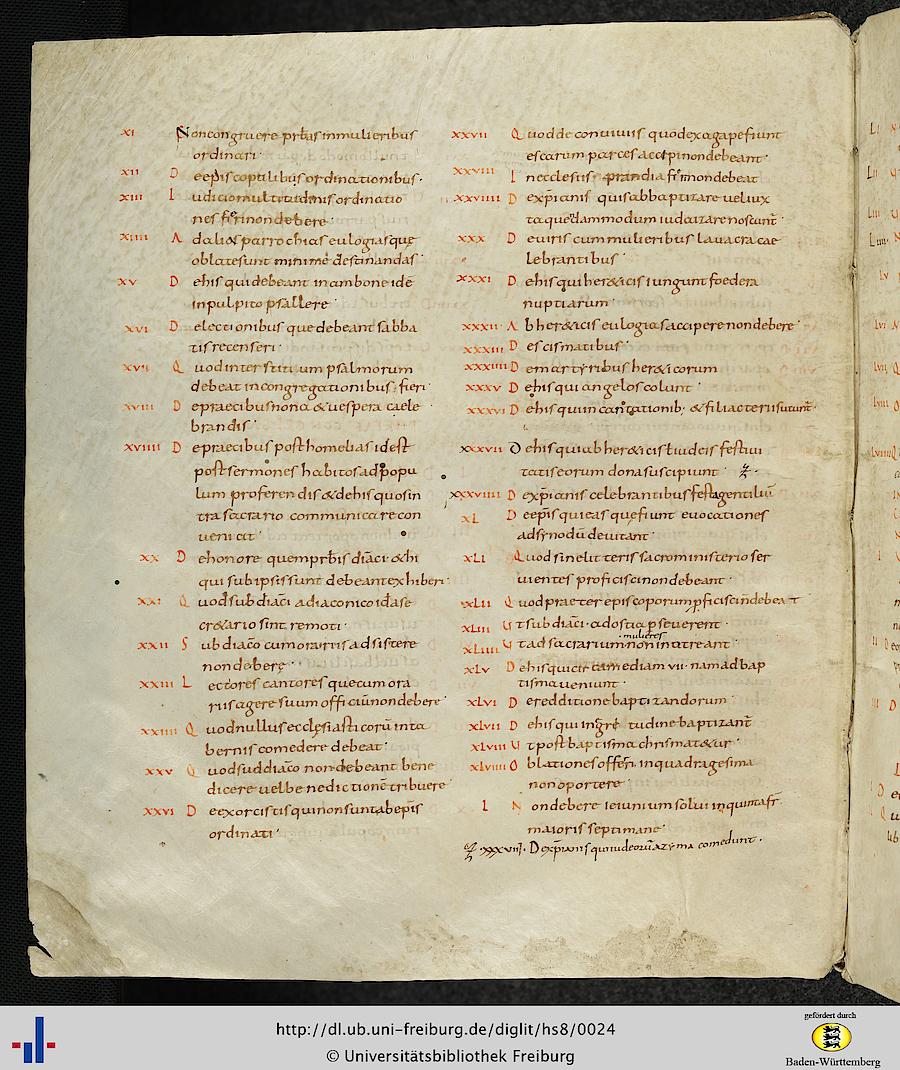 XI Non congruere prb̄as in mulieribus
ordinari·
XII D eepiscopis & libus ordinationibus·
XIII I udicio multitudinis ordinatio
nes fieri non debere·
XIIII A d alias parrochias eulogiasque
oblate sunt minime destinandas·
XV D e his qui debeant in ambone idē
in pulpito psallere·
XVI D e lectionibus que debeant sabba
tis recenseri·
XVII Q uod inter stitium psalmorum
debeat in congregationibus fieri·
XVIII D e praecibus nona & uespera caele
brandis·
XVIIII D e praecibus post homelias id est
post sermones habitos ad popu
lum proferendis & de his quo sin
tra sacrario communicare con
uenitat·
XX D e honore quem prb̄is diāci & hi
qui sub ipsis sunt debeant exhiberi·
XXI Q uod subdiāci a diaconico id ase
cretario sint remoti·
XXII S ubdiāco cum orariis adsistere
non debere·
XXIII L ectores cantores que cum ora
riis agere suum officiū non debere·
XXIIII Q uod nullus ecclesiasticorū inta
bernis comedere debeat·
XXV Q uod suddiāco non debeant bene
dicere uel benedictionē tribuere·
XXVI D e exorcistis qui non sunt ab epīs
ordinati·
XXVII Q uod de conuiuiis quod ex agape fiunt
escarum partes accipi non debeant·
XXVIII I n ecclesiis prandia fieri non debeat
XXVIIII D e xp̄ianis qui sabbaptizare uel iux
ta quedammodum iudaizare noscunt̄·
XXX D e uiris cum mulieribus lauacra cae
lebrantibus·
XXXI D e his qui her&icis iungunt foedera
nuptiarum·
XXXII A b her&icis eulogias accipere non debere·
XXXIII D e scismatibus·
XXXIIII D e martyribus her&icorum
XXXV D e his qui angelos colunt·
XXXVI D e his qui incantationib; & filiacteriis utunt̄·
XXXVII D e his qui ab her&icis t̄ iudeis festiui
tatis eorum dona suscipiunt·
XXXVIIII D e xp̄ianis celebrantibus festa gentiliū
XL D e epīs qui eas que fiunt euocationes
ad synodū deuitant·
XLI Q uod sine litteris sacro ministerio ser
uientes proficisci non debeant·
XLII Q uod praeter episcoporum p̄ficisci n̄ debeat
XLIII U t subdiāci ad ostia p seuerent·
mulieres
XLIIII U t ad sacrarium non intreant·
XLV D e his qui circa mediam VII· nam ad bap
tisma ueniunt·
XLVI D e redditione baptizandorum·
XLVII D e his qui in egritudine baptizant̄
XLVIII U t post baptisma chrismat&ur·
XLVIIII O blationes offerri in quadragesima
non oportere·
L N on debere ieiunium solui in quinta fr̄
maioris septimane·
·XXXVIII· D e xp̄ianis qui iudeorū azyma comedunt·
http://dl.ub.uni-freiburg.de/diglit/hs8/0024
© Universitätsbibliothek Freiburg
gefördert durch
Baden-Württemberg